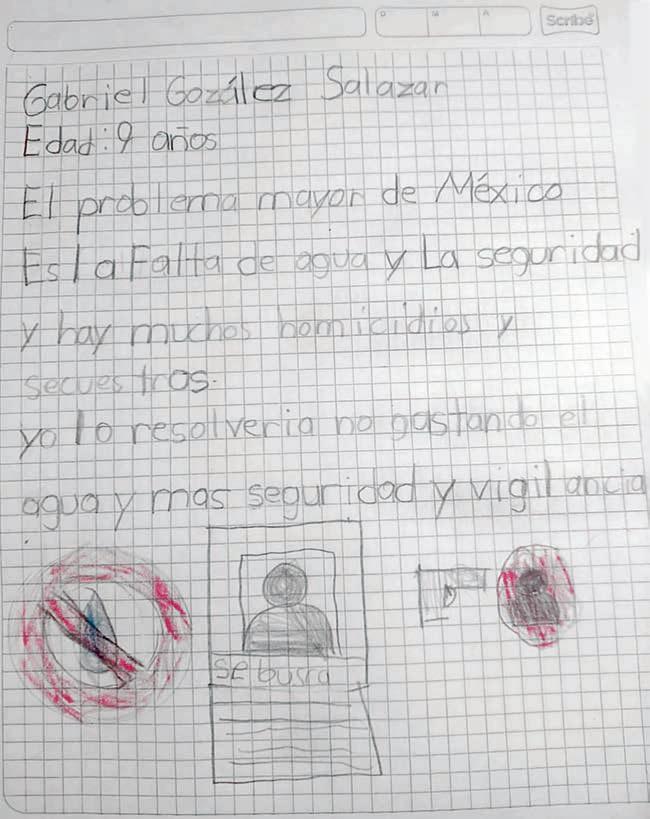 D M A
Scribe
Gabriel Gozález Salazar
Edad: 9 años
El problema mayor de México
Es la Falta de agua y La seguridad
y hay muchos homicidios y
secuestros.
yo lo resolveria no gastando el
agua y mas seguridad y vigilancia
se busca